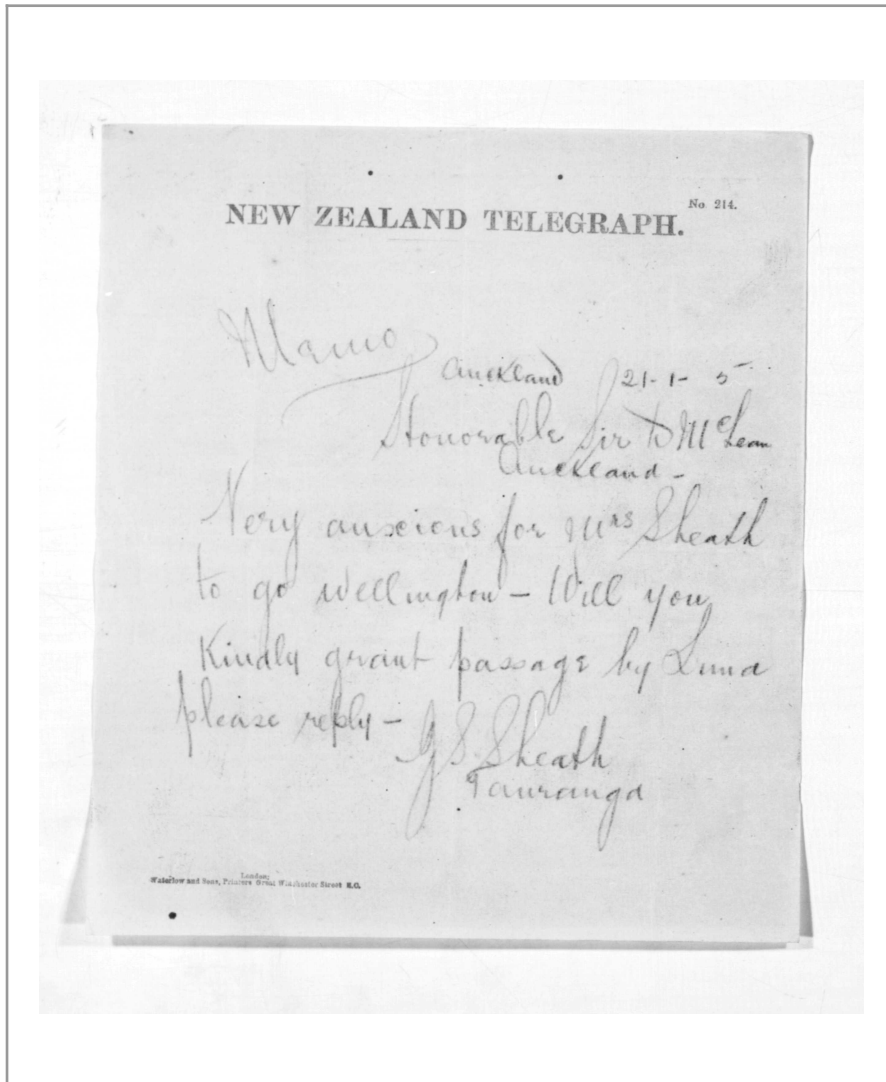 No. 214.
NEW ZEALAND TELEGRAPH.
Memo
Auckland 21-1-5
Honorable Sir D McLean
Auckland-
Very anxious for Mrs Sheath
to go Wellington - Will you
Kindly grant passage by Luna
please reply -
G S. Sheath
Tauranga
London;
Waterlow and Sons, Printers Great Winchester Street E.C.